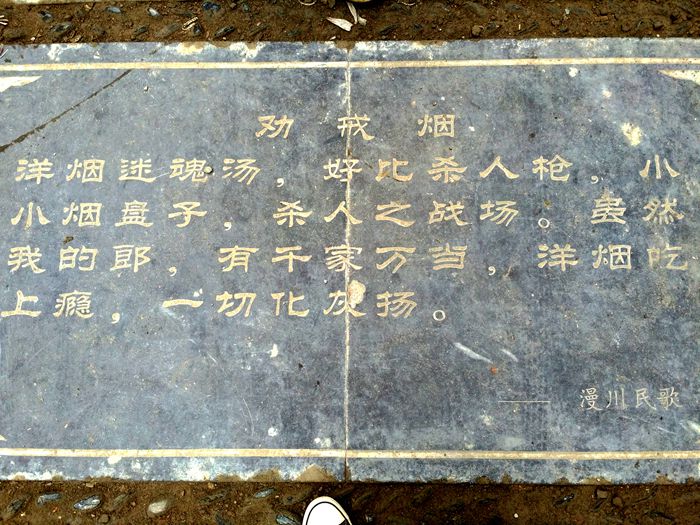 劝戒烟
洋烟迷魂汤，好比杀人枪，小
小烟盘子，杀人之战场。虽然
我的郎，有千家万当，洋烟吃
上瘾，一切化灰扬。
—— 漫川民歌